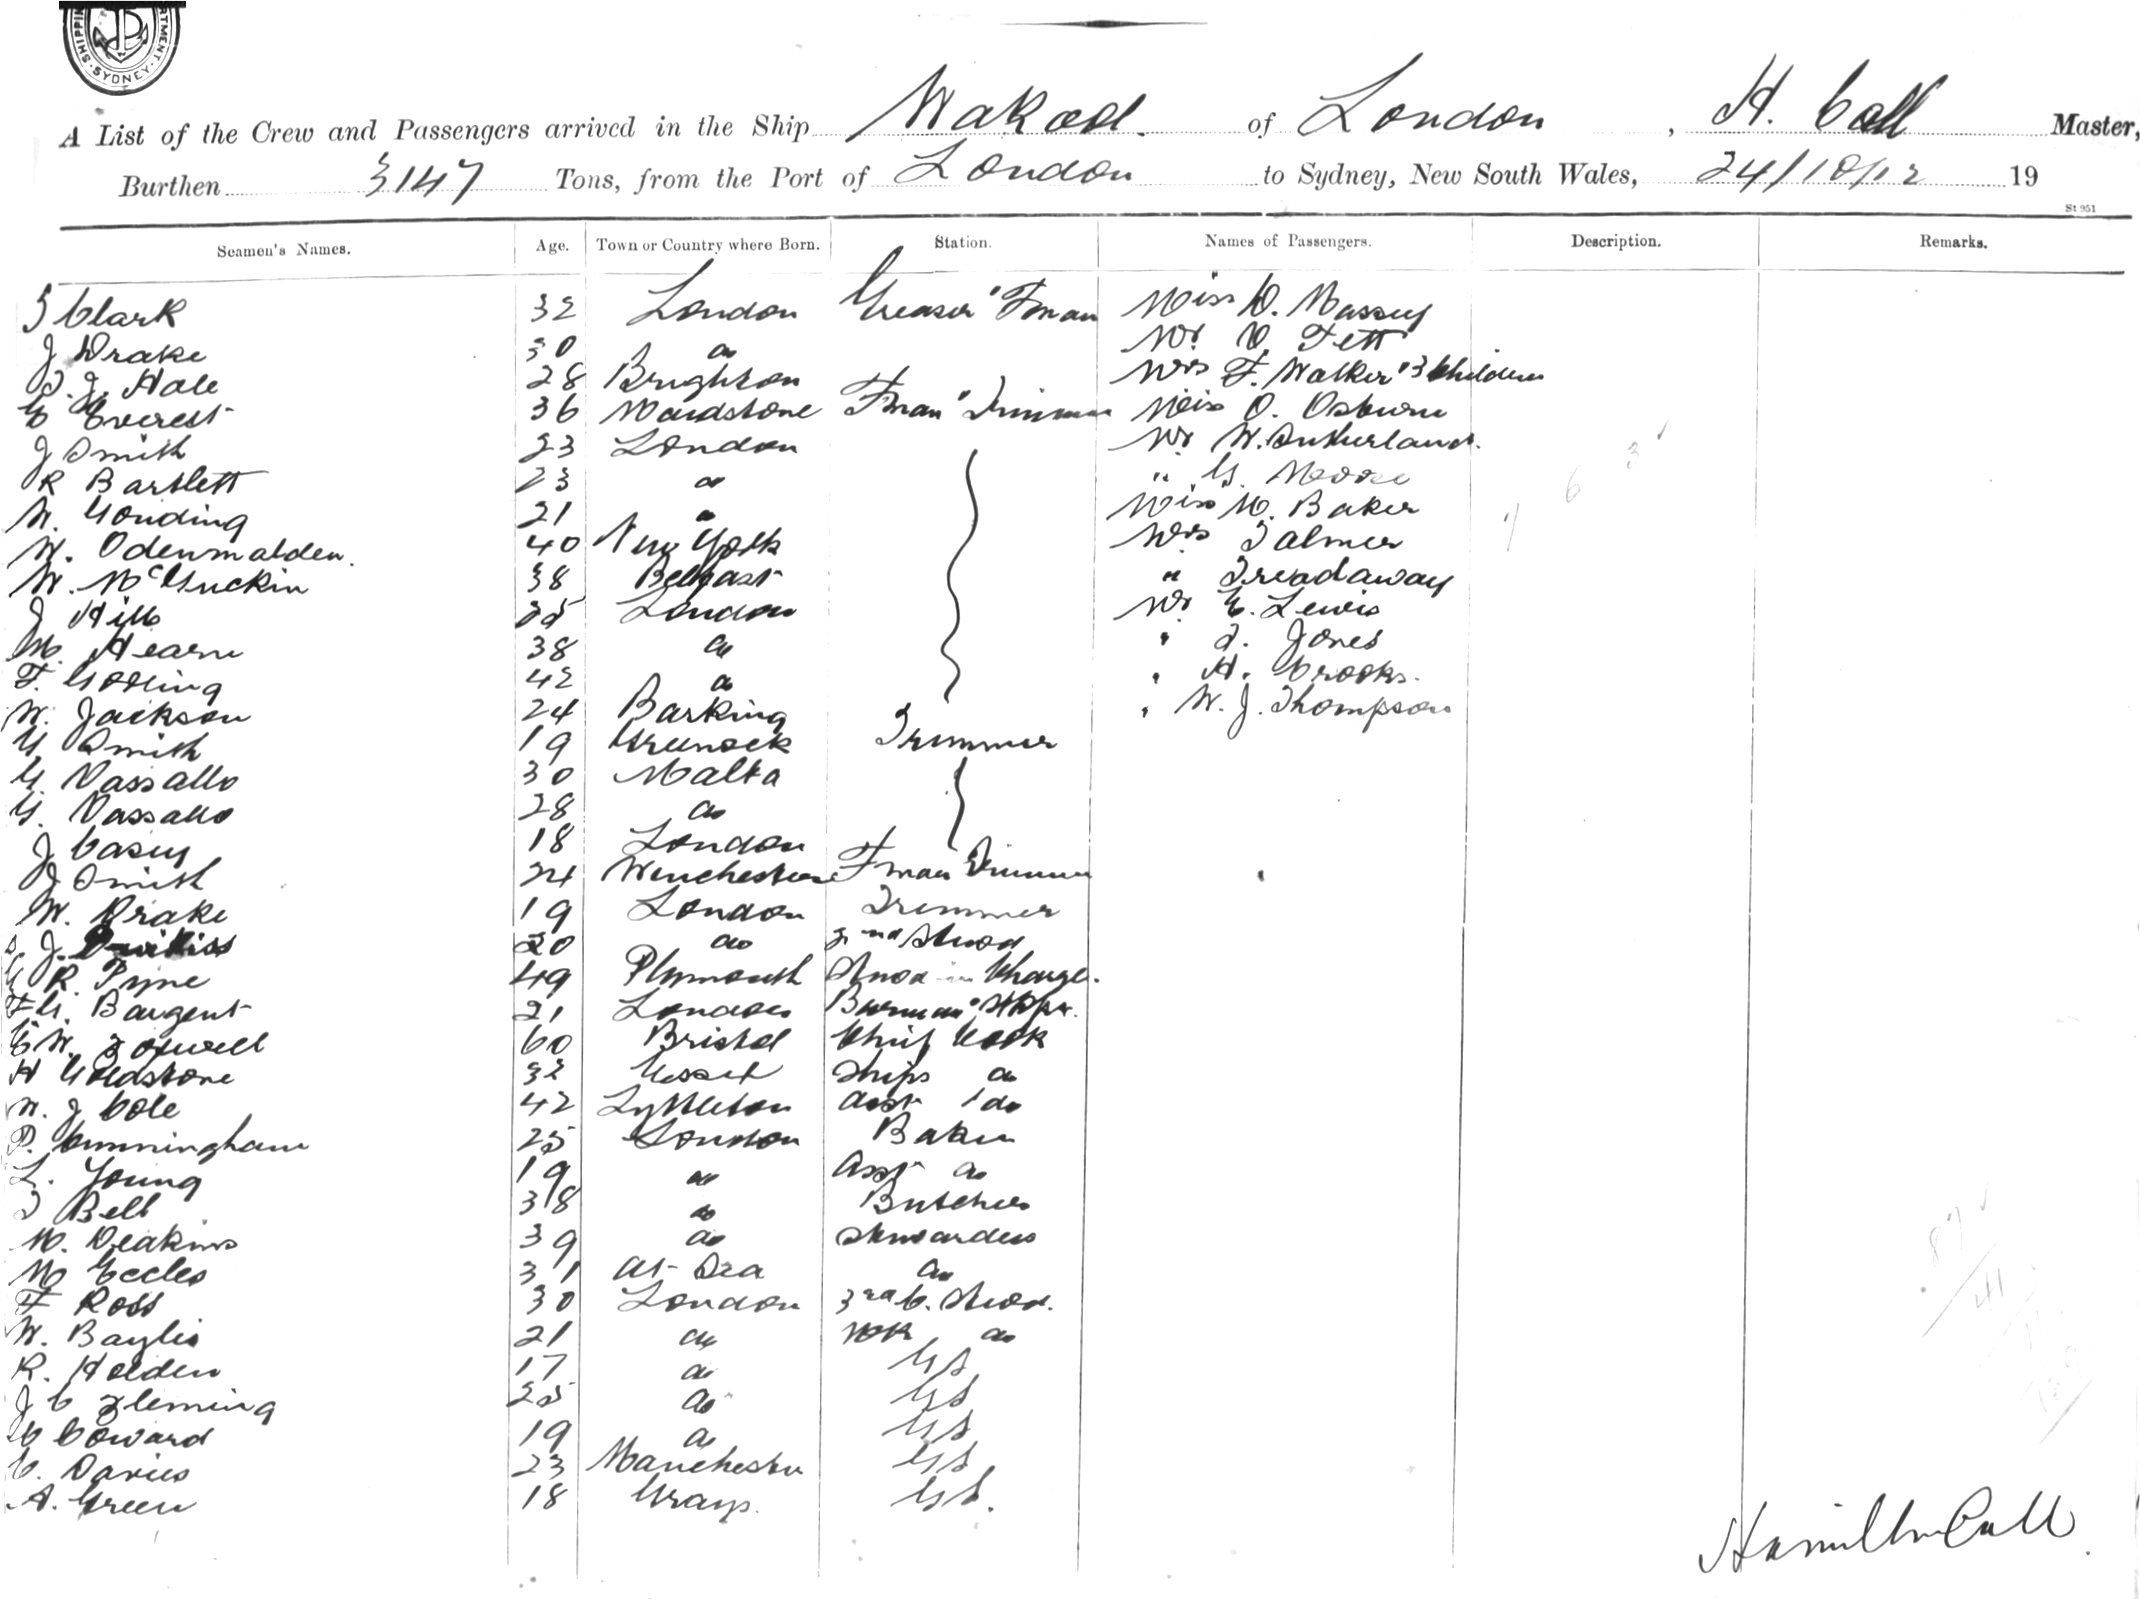 SHIPPING
SYDNEY
A List of the Crew and Passengers arrived in the Ship Wakool. of London, H. Call Master,
Burthen 3147 Tons, from the Port of London to Sydney, New South Wales, 24/10/12 19
St 951
Seamen's Names. Age. Town or Country where Born. Station. Names of Passengers. Description. Remarks.
Clark 32 London Greaser " Fman Miss D. Massey
J Drake 30 do Mr. V. Fett
T. J. Hale 28 Brighton Mrs F. Walker " 3 Children
E Everest 36 Maidstone Fman " Trimmer Miss O. Osburn
J Smith 23 London Mr W. Sutherland.
R Bartlett 23 do " G. Moore
W. Gonding 21 do Miss M. Baker
W. Odenmalden. 40 New York Mrs Palmer
W. McGuckin 38 Belfast " Treadaway
J Hills London Mr E. Lewis
M. Hearn 38 do " J. Jones
F. Gosling 42 do " H. Crooks.
W. Jackson 24 Barking " W. J. Thompson
G Smith 19 Greenock Trimmer
G. Vassallo 30 Malta
G. Vassallo 28 do
J Casey 18 London
J Smith 24 Winchester Fman Trimmer
W. Drake 19 London Trimmer
J. 20 do 2nd Stwd
R. Pyne 49 Plymouth Stwd in Charge.
F G. Bargent 21 London
E W. Foxwell 60 Bristol Chief Cook
H Goldstone 32 Essex Ships do
W. J Cole 42 Lyttleton Asst do
P. Cunningham 25 London Baker
L. Young 19 do Asst do
T Bell 38 do Butcher
M. Deakins 39 do Stewardess
M Eccles 31 At Sea do
F Ross 30 London 3rd C. Stwd.
W. Baylis 21 do do
R. Holden 17 do GS
J C Fleming 25 do GS
C Coward 19 do GS
C. Davies 23 Manchester GS
A. Green 18 Grays. GS.
Hamilton Call